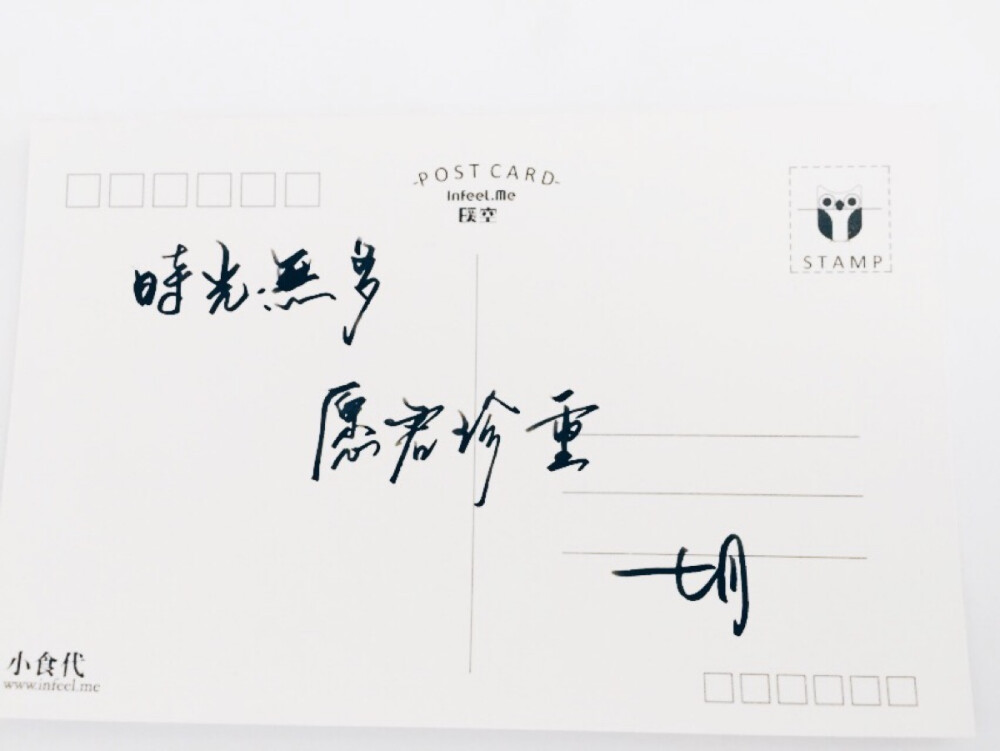 POST CARD
Infeel.Me
STAMP
時光無多
愿君珍重
七月
小食代
www.infeel.me